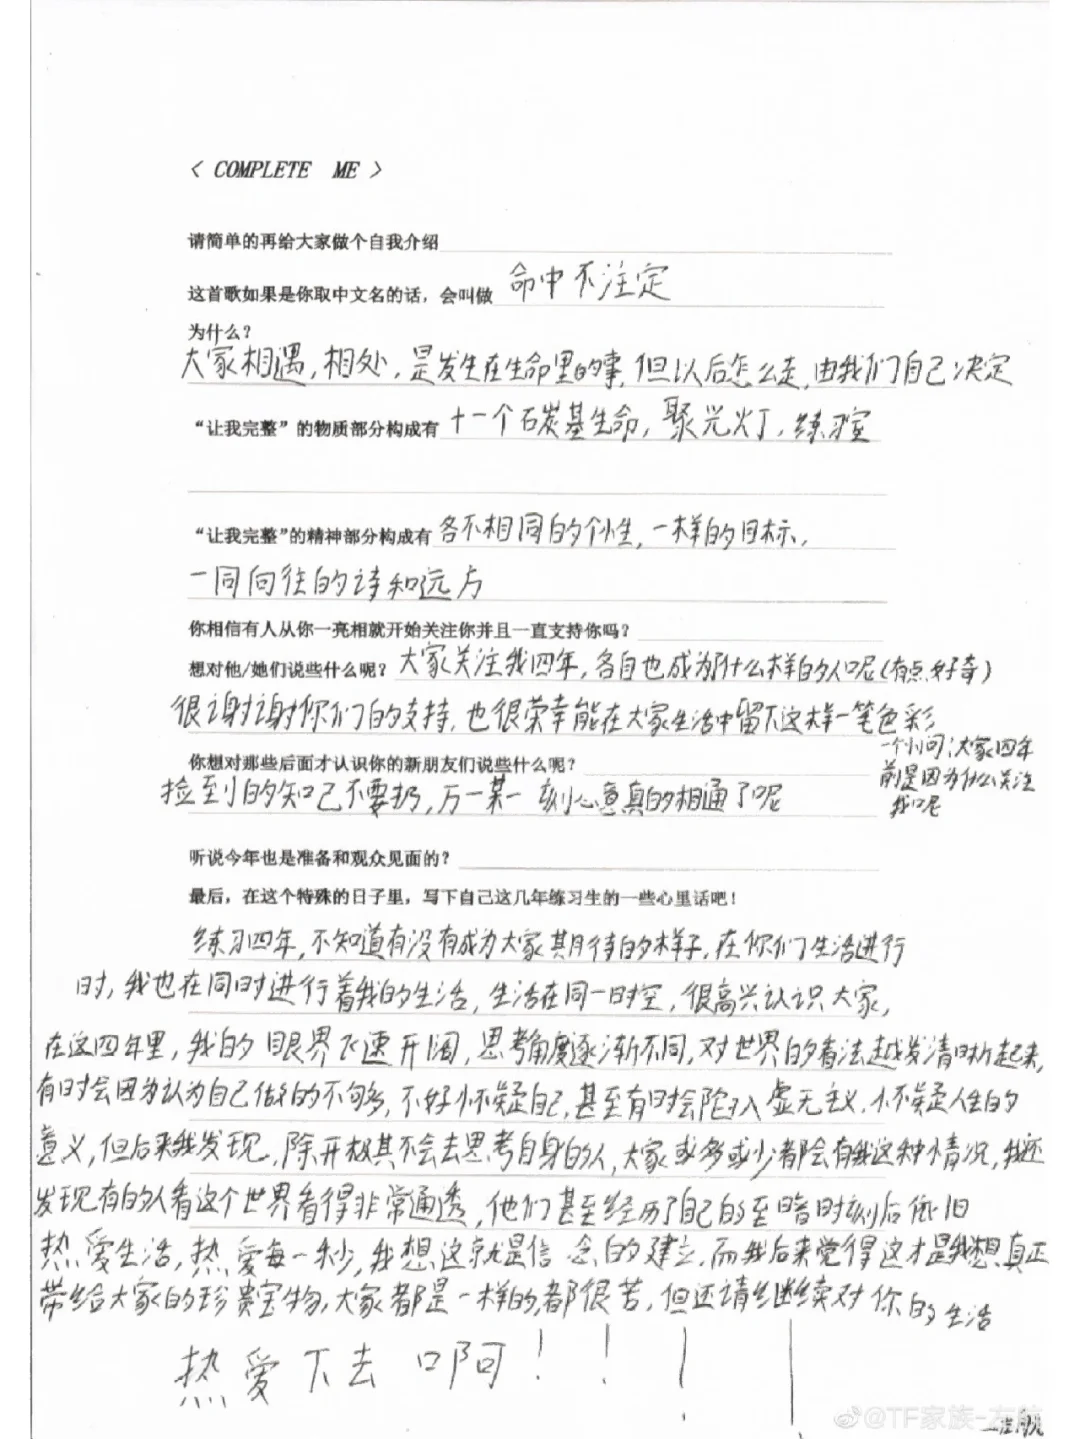 < COMPLETE ME >
请简单的再给大家做个自我介绍
这首歌如果是你取中文名的话，会叫做 命中不注定
为什么？
大家相遇，相处，是发生在生命里的事，但以后怎么走，由我们自己决定
“让我完整”的物质部分构成有 十一个石炭基生命，聚光灯，练习室
“让我完整”的精神部分构成有 各不相同的个性，一样的目标，
一同向往的诗和远方
你相信有人从你一亮相就开始关注你并且一直支持你吗？
想对他/她们说些什么呢？ 大家关注我四年，各自也成为了什么样的人呢（有点好奇）
很谢谢你们的支持，也很荣幸能在大家生活中留下这样一笔色彩
一个小问：大家四年
前是因为什么关注
我呢
你想对那些后面才认识你的新朋友们说些什么呢？
捡到的知己不要扔，万一某一刻心意真的相通了呢
听说今年也是准备和观众见面的？
最后，在这个特殊的日子里，写下自己这几年练习生的一些心里话吧！
练习四年，不知道有没有成为大家期待的样子，在你们生活进行
时，我也在同时进行着我的生活，生活在同一时空，很高兴认识大家，
在这四年里，我的眼界飞速开阔，思考角度逐渐不同，对世界的看法越发清晰起来，
有时会因为认为自己做的不够多，不好怀疑自己，甚至有时会陷入虚无主义，怀疑人生的
意义，但后来我发现，除开极其不会去思考自身的人，大家或多或少都会有我这种情况，我还
发现有的人看这个世界看得非常通透，他们甚至经历了自己的至暗时刻后依旧
热爱生活，热爱每一秒，我想这就是信念的建立，而我后来觉得这才是我想真正
带给大家的珍贵宝物，大家都是一样的，都很苦，但还请继续对你的生活
热爱下去啊！！！！
—左航
@TF家族-左航